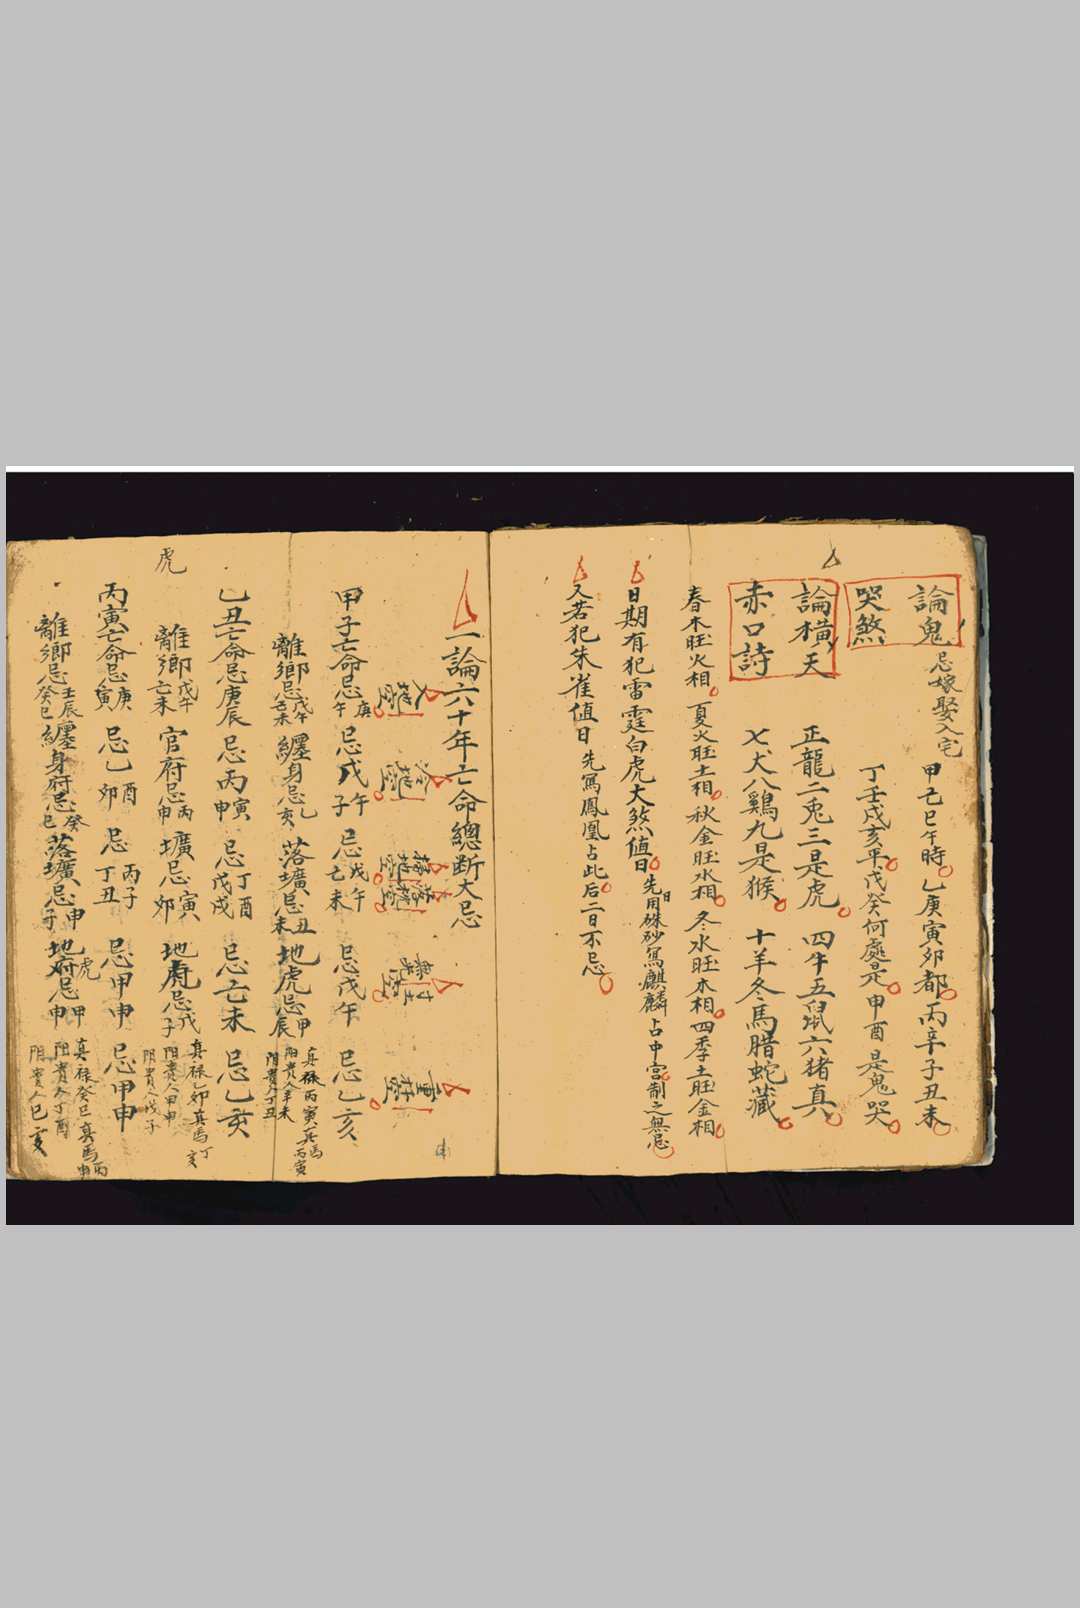 論鬼 忌嫁娶入宅 甲己巳午時 乙庚寅卯都 丙辛子丑未
哭煞 丁壬戌亥平 戊癸何處是 申酉是鬼哭
論橫天 正龍二兔三是虎 四牛五鼠六猪真
赤口詩 七犬八鷄九是猴 十羊冬馬腊蛇藏
春木旺火相 夏火旺土相 秋金旺水相 冬水旺木相 四季土旺金相
日期有犯雷霆白虎大煞值日 先用硃砂寫麒麟占中宫制之無忌
又若犯朱雀值日 先寫鳳凰占此后二日不忌
一論六十年亡命總断大忌
甲子亡命忌庚午 忌戊午子 忌戊午己未 忌戊午 忌乙亥
離鄉忌戊午己未 纏身忌乙亥 落壙忌丑未 地虎忌甲辰 真禄丙寅 真馬丙寅 陽貴人辛未 阴貴人丁丑
乙丑亡命忌庚辰 忌丙寅申 忌丁酉戊戌 忌亡未 忌乙亥
虎
離鄉戊午己未 官府忌丙申 壙忌寅卯 地虎忌戊子 真禄乙卯 真馬丁亥 阳貴人甲申 阴貴人戊子
丙寅亡命忌庚寅 忌乙酉卯 忌丙子丁丑 忌甲申 忌甲申
離鄉忌壬辰癸巳 纏身府忌癸巳 落壙忌申子 地府虎忌甲申 真禄癸巳 真馬丙申 阳貴人丁酉 阴貴人巳亥